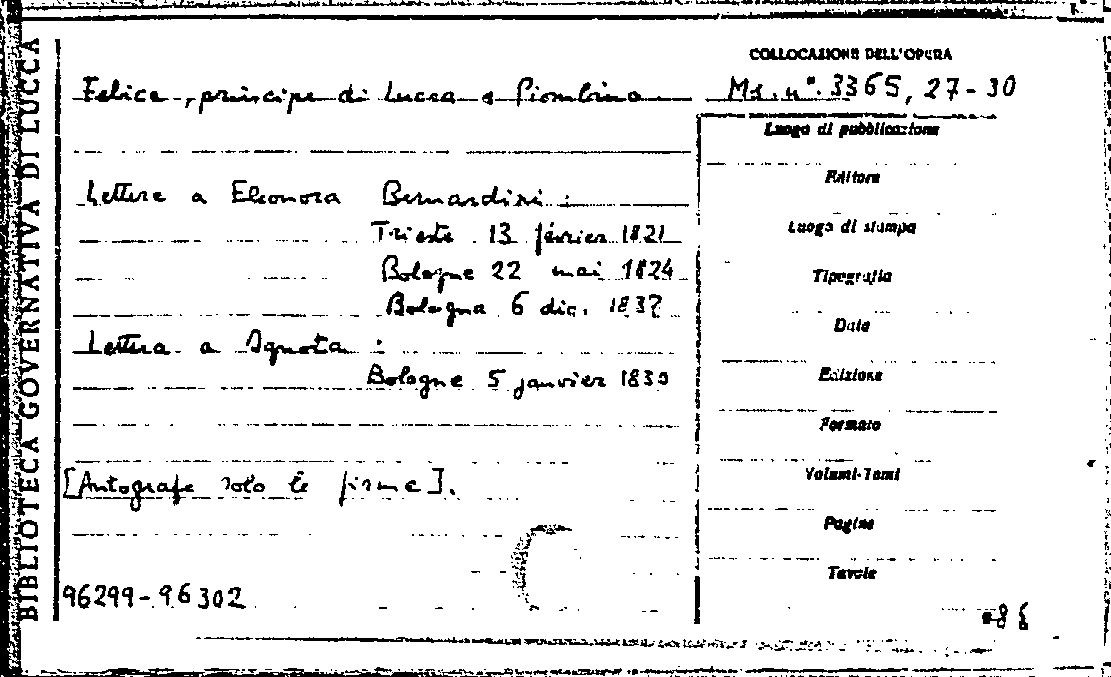 BIBLIOTECA GOVERNATIVA DI LUCCA
COLLOCAZIONE DELL'OPERA
Felice, principe di Lucca e Piombino
Ms. n°. 3365, 27-30
Lettere a Eleonora Bernardini:
Trieste 13 février 1821
Bologne 22 mai 1824
Bologna 6 dic. 1837
Lettera a Ignota:
Bologne 5 janvier 1830
[Autografe solo le firme].
96299-96302
Luogo di pubblicazione
Editore
Luogo di stampa
Tipografia
Data
Edizione
Formato
Volumi-Tomi
Pagine
Tavole